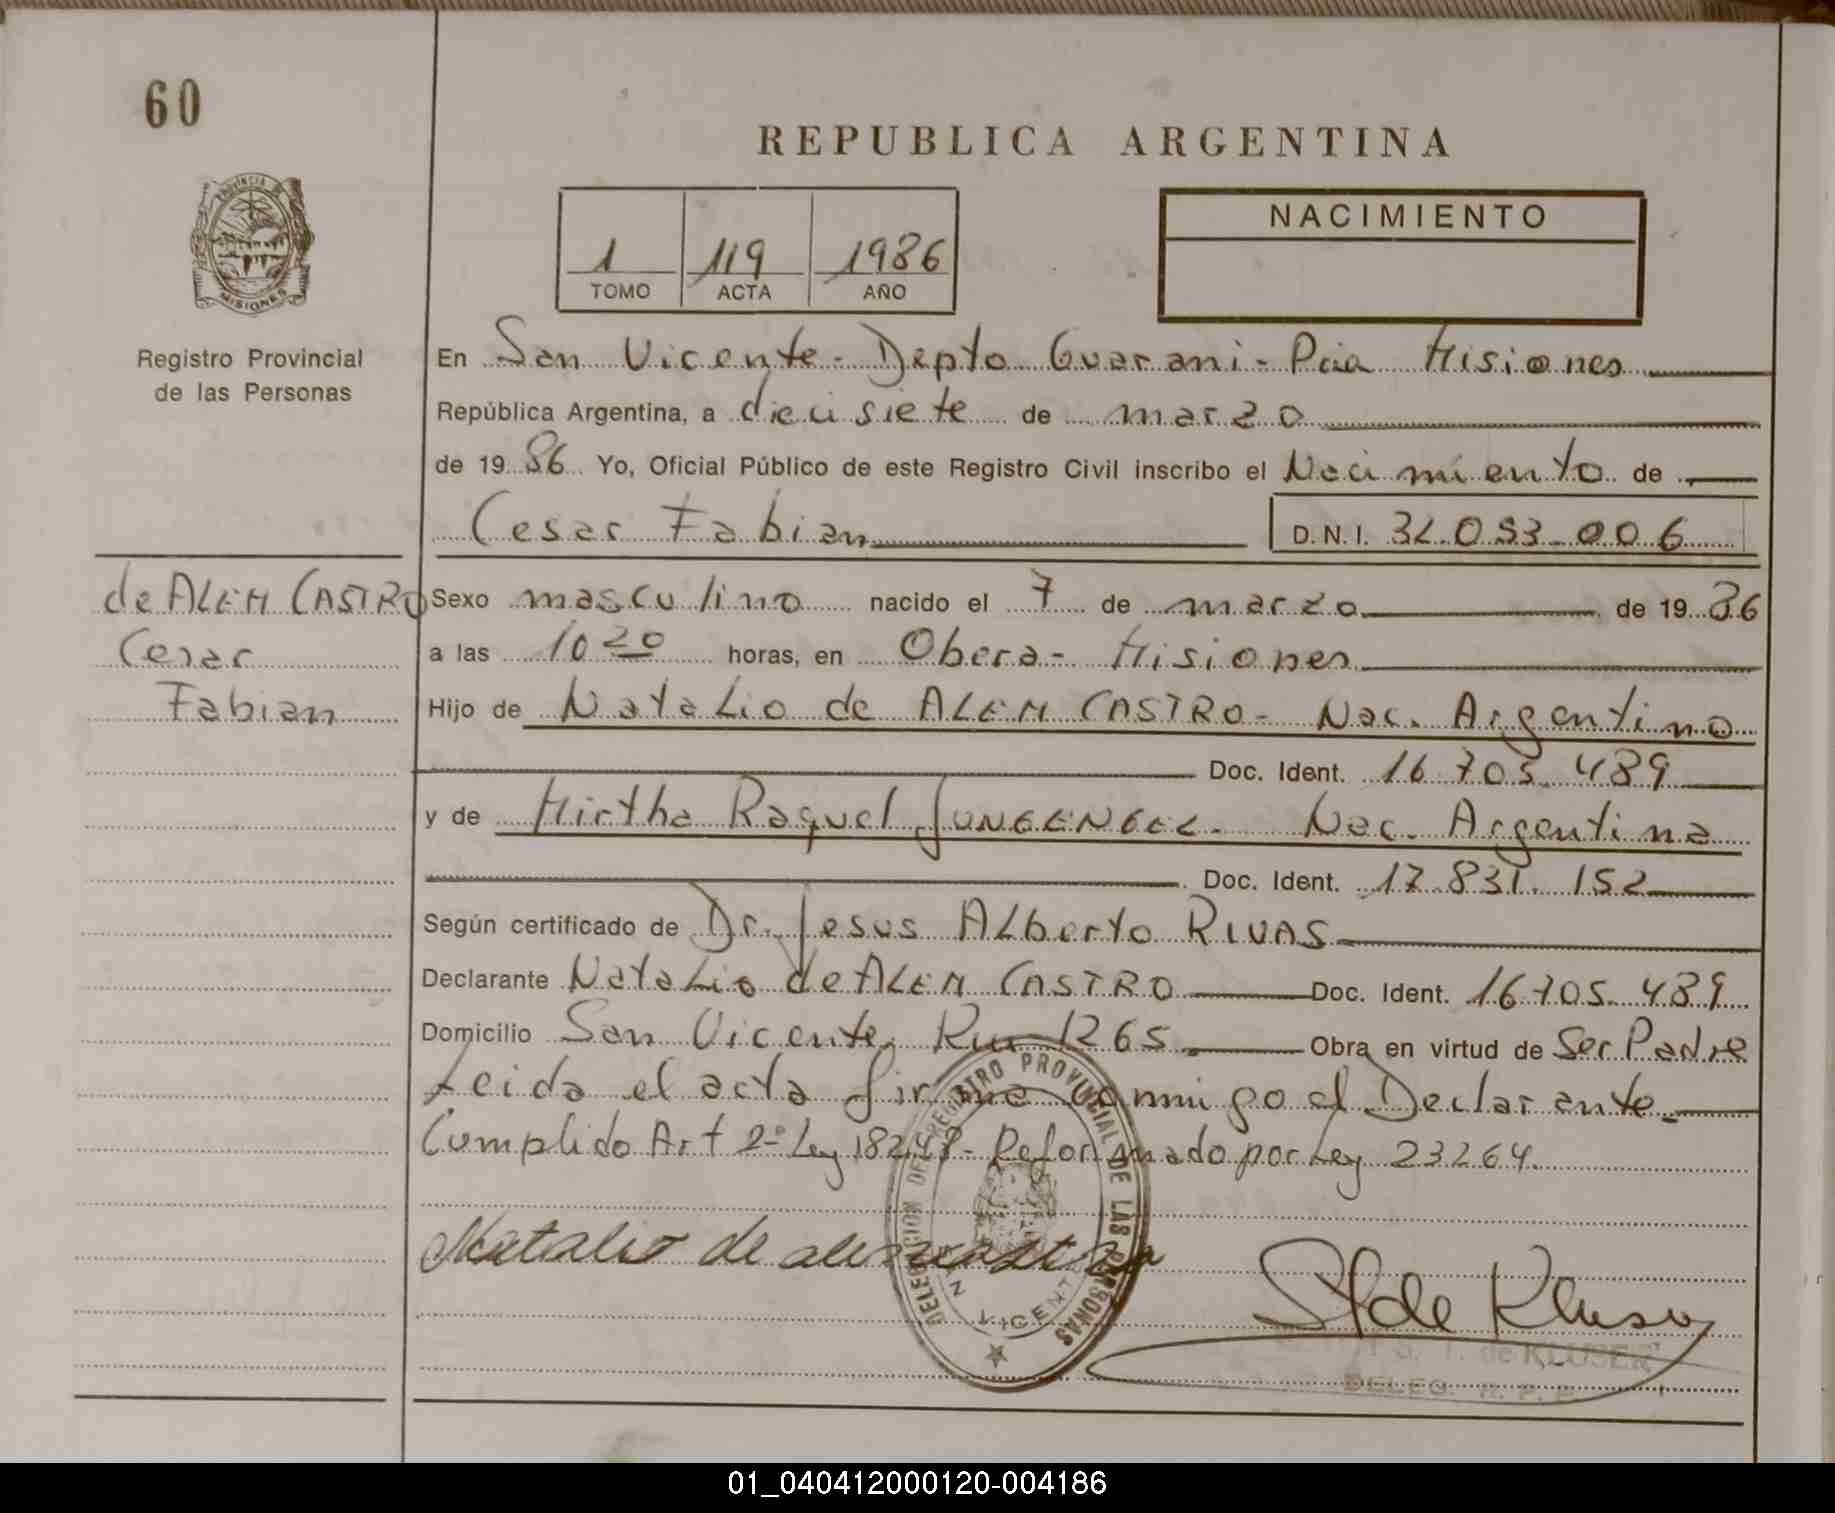 60
REPUBLICA ARGENTINA
PROVINCIA DE
MISIONES
Registro Provincial
de las Personas
1 119 1986
TOMO ACTA AÑO
NACIMIENTO
En San Vicente - Depto Guarani - Pcia Misiones
República Argentina, a diecisiete de marzo
de 1986 Yo, Oficial Público de este Registro Civil inscribo el Nacimiento de
Cesar Fabian D.N.I. 32.053.006
de ALEM CASTRO
Cesar
Fabian
Sexo masculino nacido el 7 de marzo de 1986
a las 10 20 horas, en Obera - Misiones
Hijo de Natalio de ALEM CASTRO - Nac. Argentino
Doc. Ident. 16.705.489
y de Mirtha Raquel JUNGENGEL. Nac. Argentina
Doc. Ident. 17.831.152
Según certificado de Dr. Jesus Alberto RIVAS
Declarante Natalio de ALEM CASTRO Doc. Ident. 16.705.489
Domicilio San Vicente Km 1265 Obra en virtud de Ser Padre
Leida el acta firma conmigo el Declarante
Cumplido Art 2º Ley 18248 - Reformado por Ley 23264.
DELEGACION DEL REGISTRO PROVINCIAL DE LAS PERSONAS
SAN VICENTE
Natalio de alem castro
de Kluser
S. T. de KLUSER
DELEG. R. P. P.
01_040412000120-004186